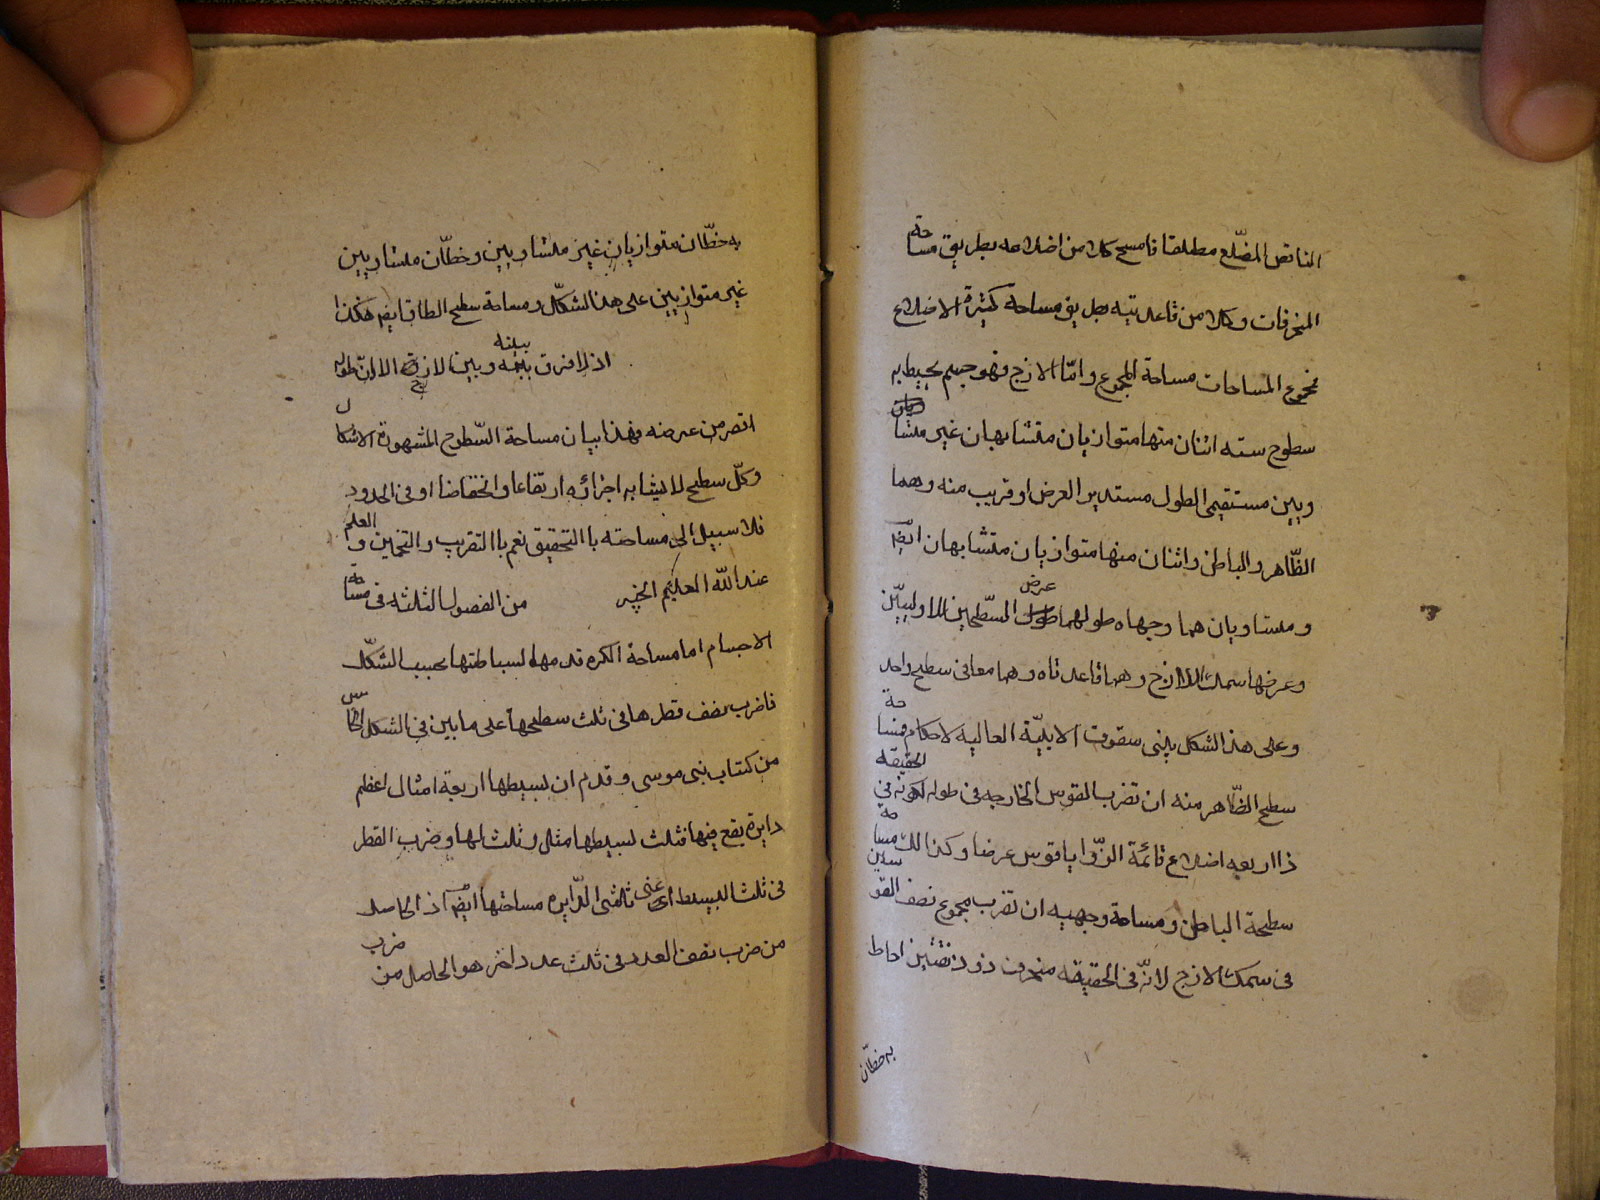 الناقص المضلّع مطلقا فامسح كلا من اضلاعه بطريق مساحة
المنحرفات وكلا من قاعدتيه بطريق مساحة كثيرة الاضلاع
فمجموع المساحات مساحة المجموع وامّا الازج فهو جسم يحيط به
سطوح سته اثنان منها متوازيان متشابهان غير متسا
ويين مستقيمى الطول مستديرا العرض او قريب منه وهما
الظّاهر والباطن واثنان منها متوازيان متشابهان ايضا
ومتساويان هما وجهاه طولهما عرض السّطحين الاوليين
وعرضها سمك الازج وهما قاعدتاه وهما معا فى سطح واحد
وعلى هذا الشكل يبنى سقوف الابنيّة العالية لاحكام مساحة
سطح الظّاهر منه ان تضرب القوس الخارجه فى طوله لكونه فى الحقيقه
ذا اربعه اضلاع قائمة الزّوايا قوس عرضا وكذالك مساحة
سطحة الباطن ومساحة وجهيه ان تضرب مجموع نصف القوسين
فى سمك الازج لانّه فى الحقيقه منحرف ذو ذنقتين احاط
به خطّان
به خطّان متوازيان غير متساويين وخطّان متساويين
غير متوازيين على هذا الشكّل ومساحة سطح الطاق ايضا هكذا
اذ لا فرق بينه وبين الازج الا انّ طوله
اقصر من عرضه فهذا بيان مساحة السّطوح المشهورة الاشكال
وكلّ سطح لا يتشابه اجزائه ارتفاعا وانخفاضا او فى الحدود
فلا سبيل الى مساحته باالتحقيق نعم باالتقريب والتخمين والعلم
عند الله العليم الخبير من الفصول الثلثه فى مساحة
الاجسام اما مساحة الكره قدمها لبساطتها بحسب الشكّل
فاضرب نصف قطرها فى ثلث سطحها على ما بين فى الشكل الخامس
من كتاب بنى موسى وقدم ان بسيطها اربعة امثال اعظم
دايرة يقع فيها فثلث بسيطها مثل وثلث لها وضرب القطر
فى ثلث البسيط اعنى ثلثى الدّايره مساحتها ايضا اذ الحاصل
من ضرب نصف العدد فى ثلث عدد اخر هو الحاصل من ضرب